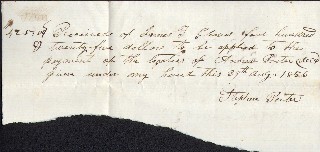 $425.00 Received of Samuel F. four hundred
& twenty-five dollars to be applied to the
payment of the legatees of Andrew Porter decd
given under my hand this 29th Aug. 1856
Stephen Porter